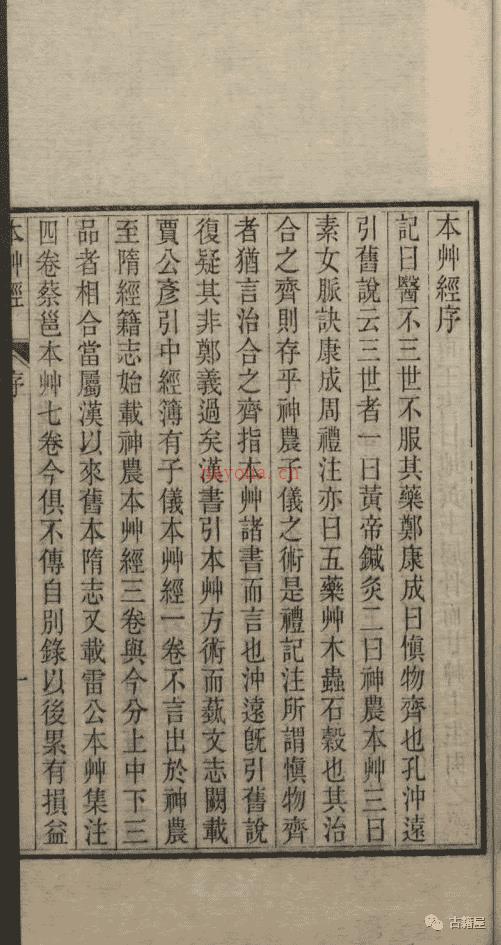 本艸經序
記曰醫不三世不服其藥鄭康成曰愼物齊也孔沖遠
引舊說云三世者一曰黃帝鍼灸二曰神農本艸三曰
素女脈訣康成周禮注亦曰五藥艸木蟲石穀也其治
合之齊則存乎神農子儀之術是禮記注所謂愼物齊
者猶言治合之齊指本艸諸書而言也沖遠旣引舊說
復疑其非鄭義過矣漢書引本艸方術而蓺文志闕載
賈公彥引中經簿有子儀本艸經一卷不言出於神農
至隋經籍志始載神農本艸經三卷與今分上中下三
品者相合當屬漢以來舊本隋志又載雷公本艸集注
四卷蔡邕本艸七卷今俱不傳自別錄以後累有損益
本艸經 序 一
nayona.cn
古籍屋